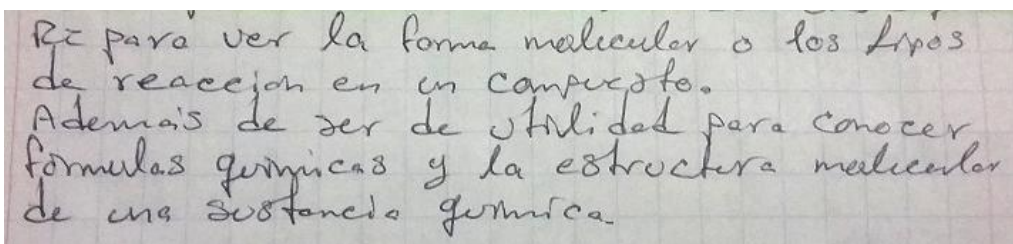 R= para ver la forma molecular o los tipos
de reaccion en un compuesto.
Además de ser de utilidad para conocer
formulas quimicas y la estructura molecular
de una sustancia quimica